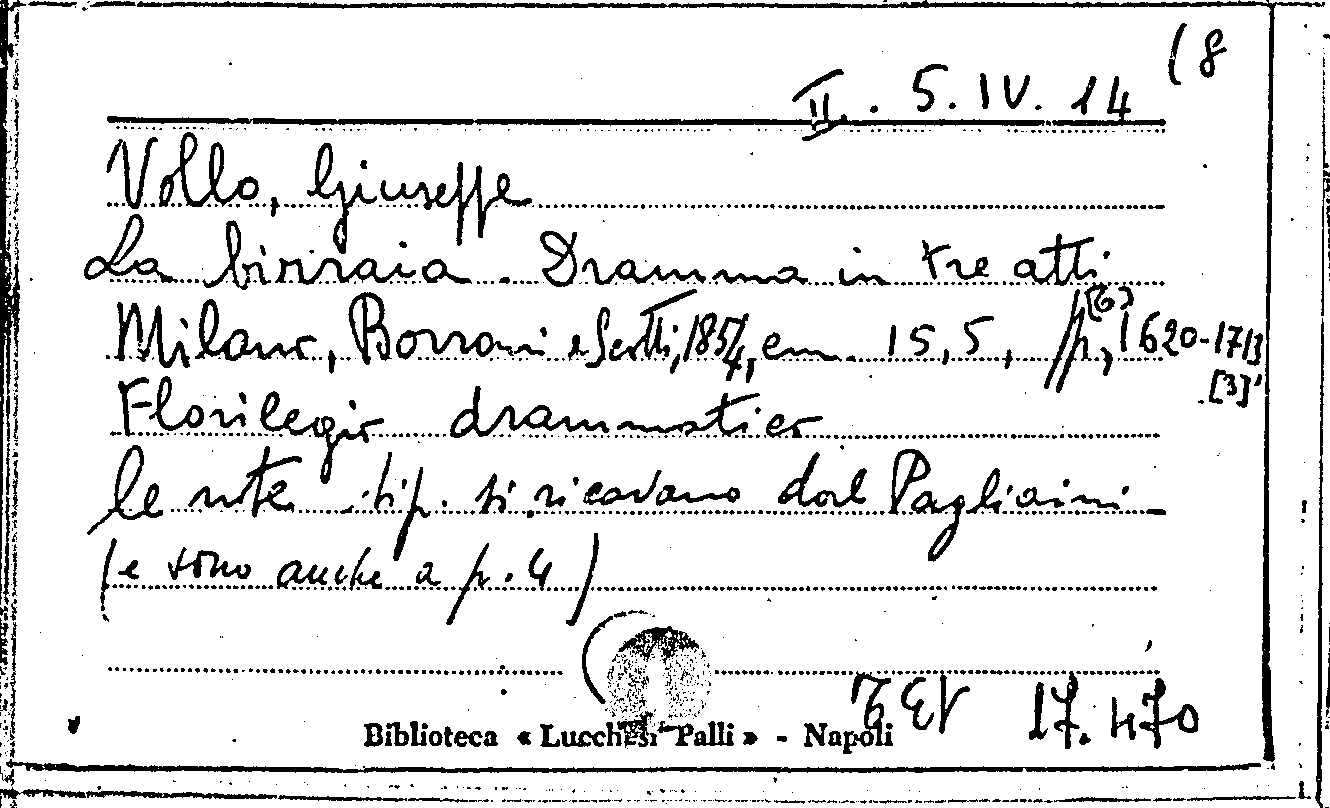 II. 5. IV. 14 (8
Vollo, Giuseppe
La birraia. Dramma in tre atti
Milano, Borroni e Scotti, 1854, cm. 15,5, p. [6], 1620-1713
[3]
Florilegio drammatico
le note tip. si ricavano dal Pagliaini
(e sono anche a p. 4)
17.470
Biblioteca « Lucchesi Palli » - Napoli